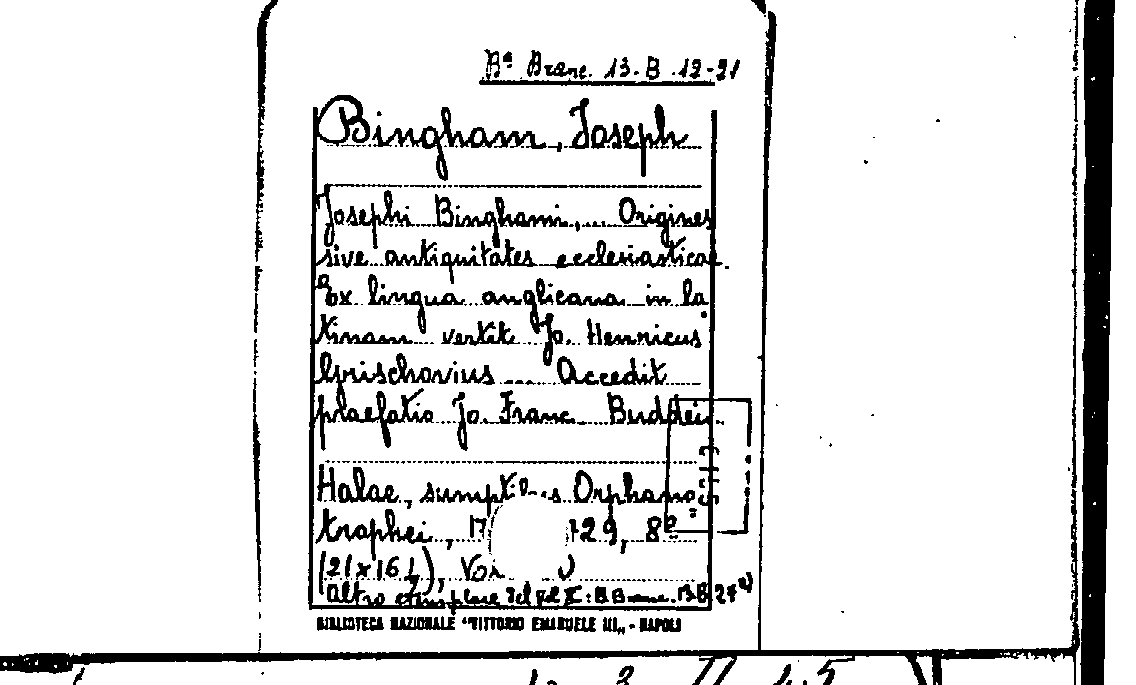 Bª Branc. 13. B. 12-21
Bingham, Joseph
Josephi Binghami, ... Origines
sive antiquitates ecclesiasticae.
Ex lingua anglicana in la
tinam vertit Jo. Henricus
Grischovius ... Accedit
praefatio Jo. Franc. Buddei..
Halae, Orphano=
trophei, 29, 8º
(21x16
Altro esemplare del vol X: B. Branc. 13 B
BIBLIOTECA NAZIONALE "VITTORIO EMANUELE III„ - NAPOLI